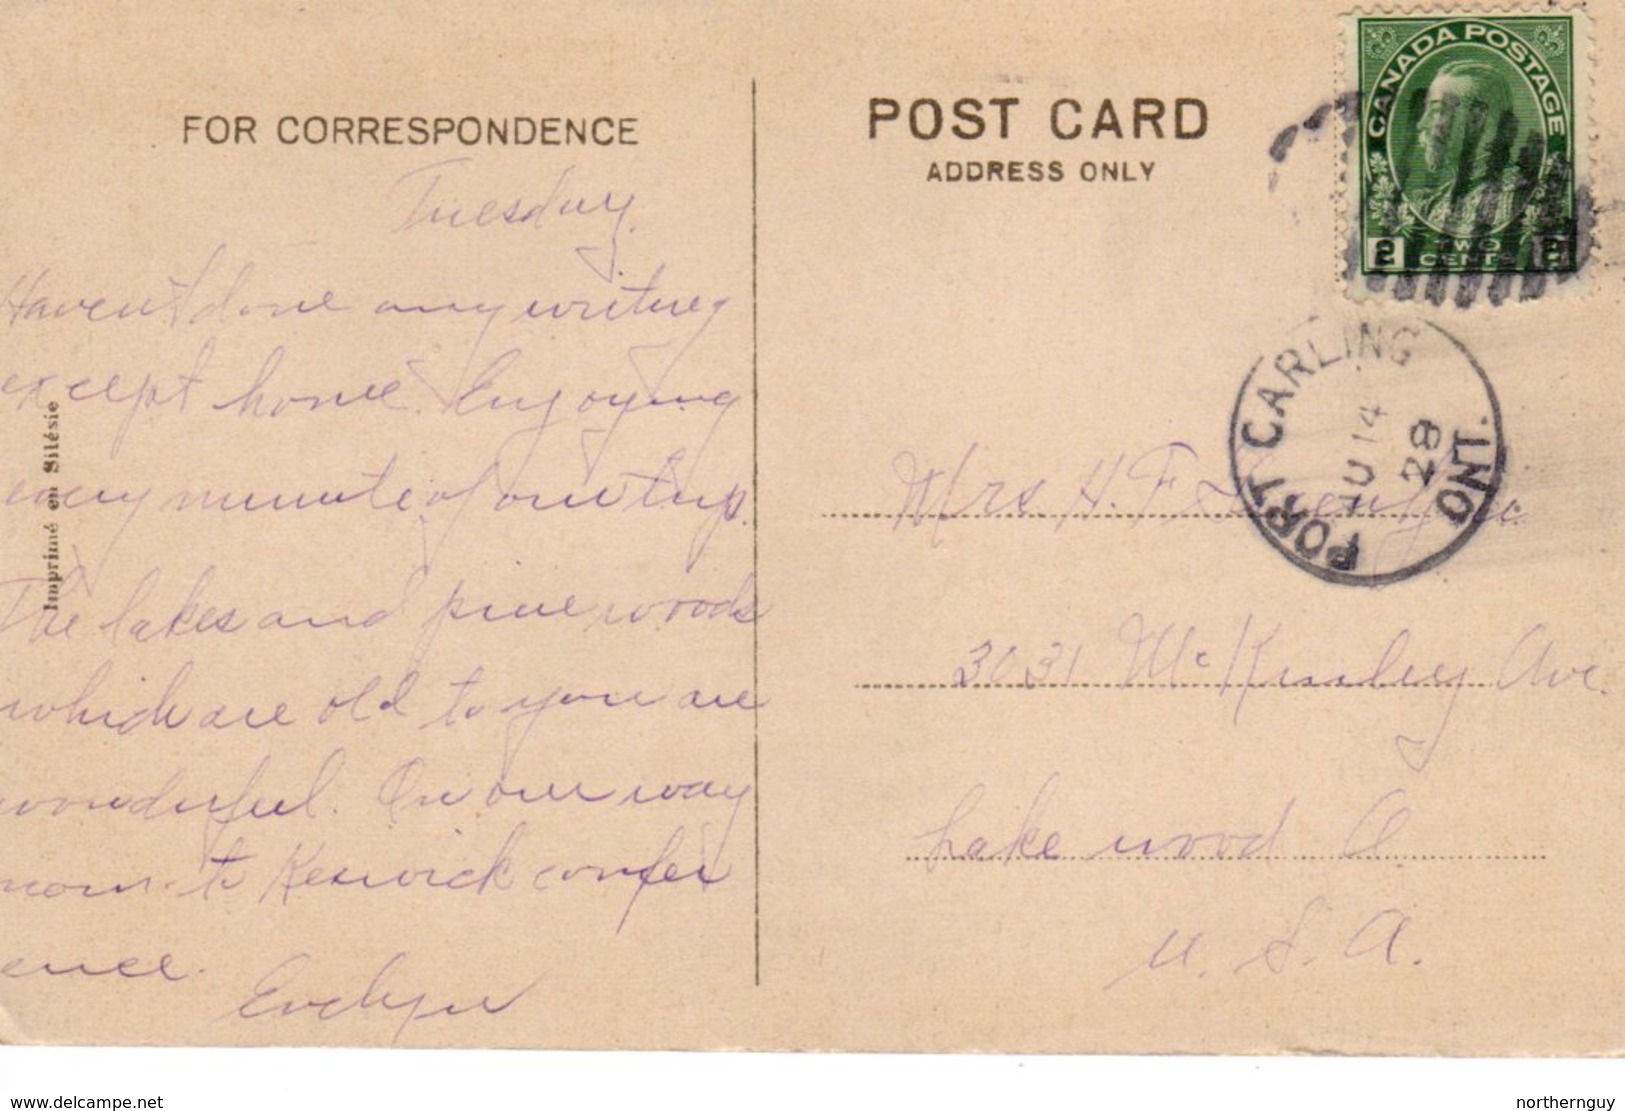 FOR CORRESPONDENCE
Tuesday.
Haven't done any writing
except home. Enjoying
every minute of our trip.
The lakes and pine woods
which are old to you are
wonderful. On our way
now to Keswick confer
ence.
Evelyn
Imprimé en Silésie
POST CARD
ADDRESS ONLY
CANADA POSTAGE
2 TWO CENTS 2
PORT CARLING
14
28
ONT.
Mrs H. F.
3031 McKinley Ave.
Lakewood O.
U. S. A.
delcampe.net
northernguy